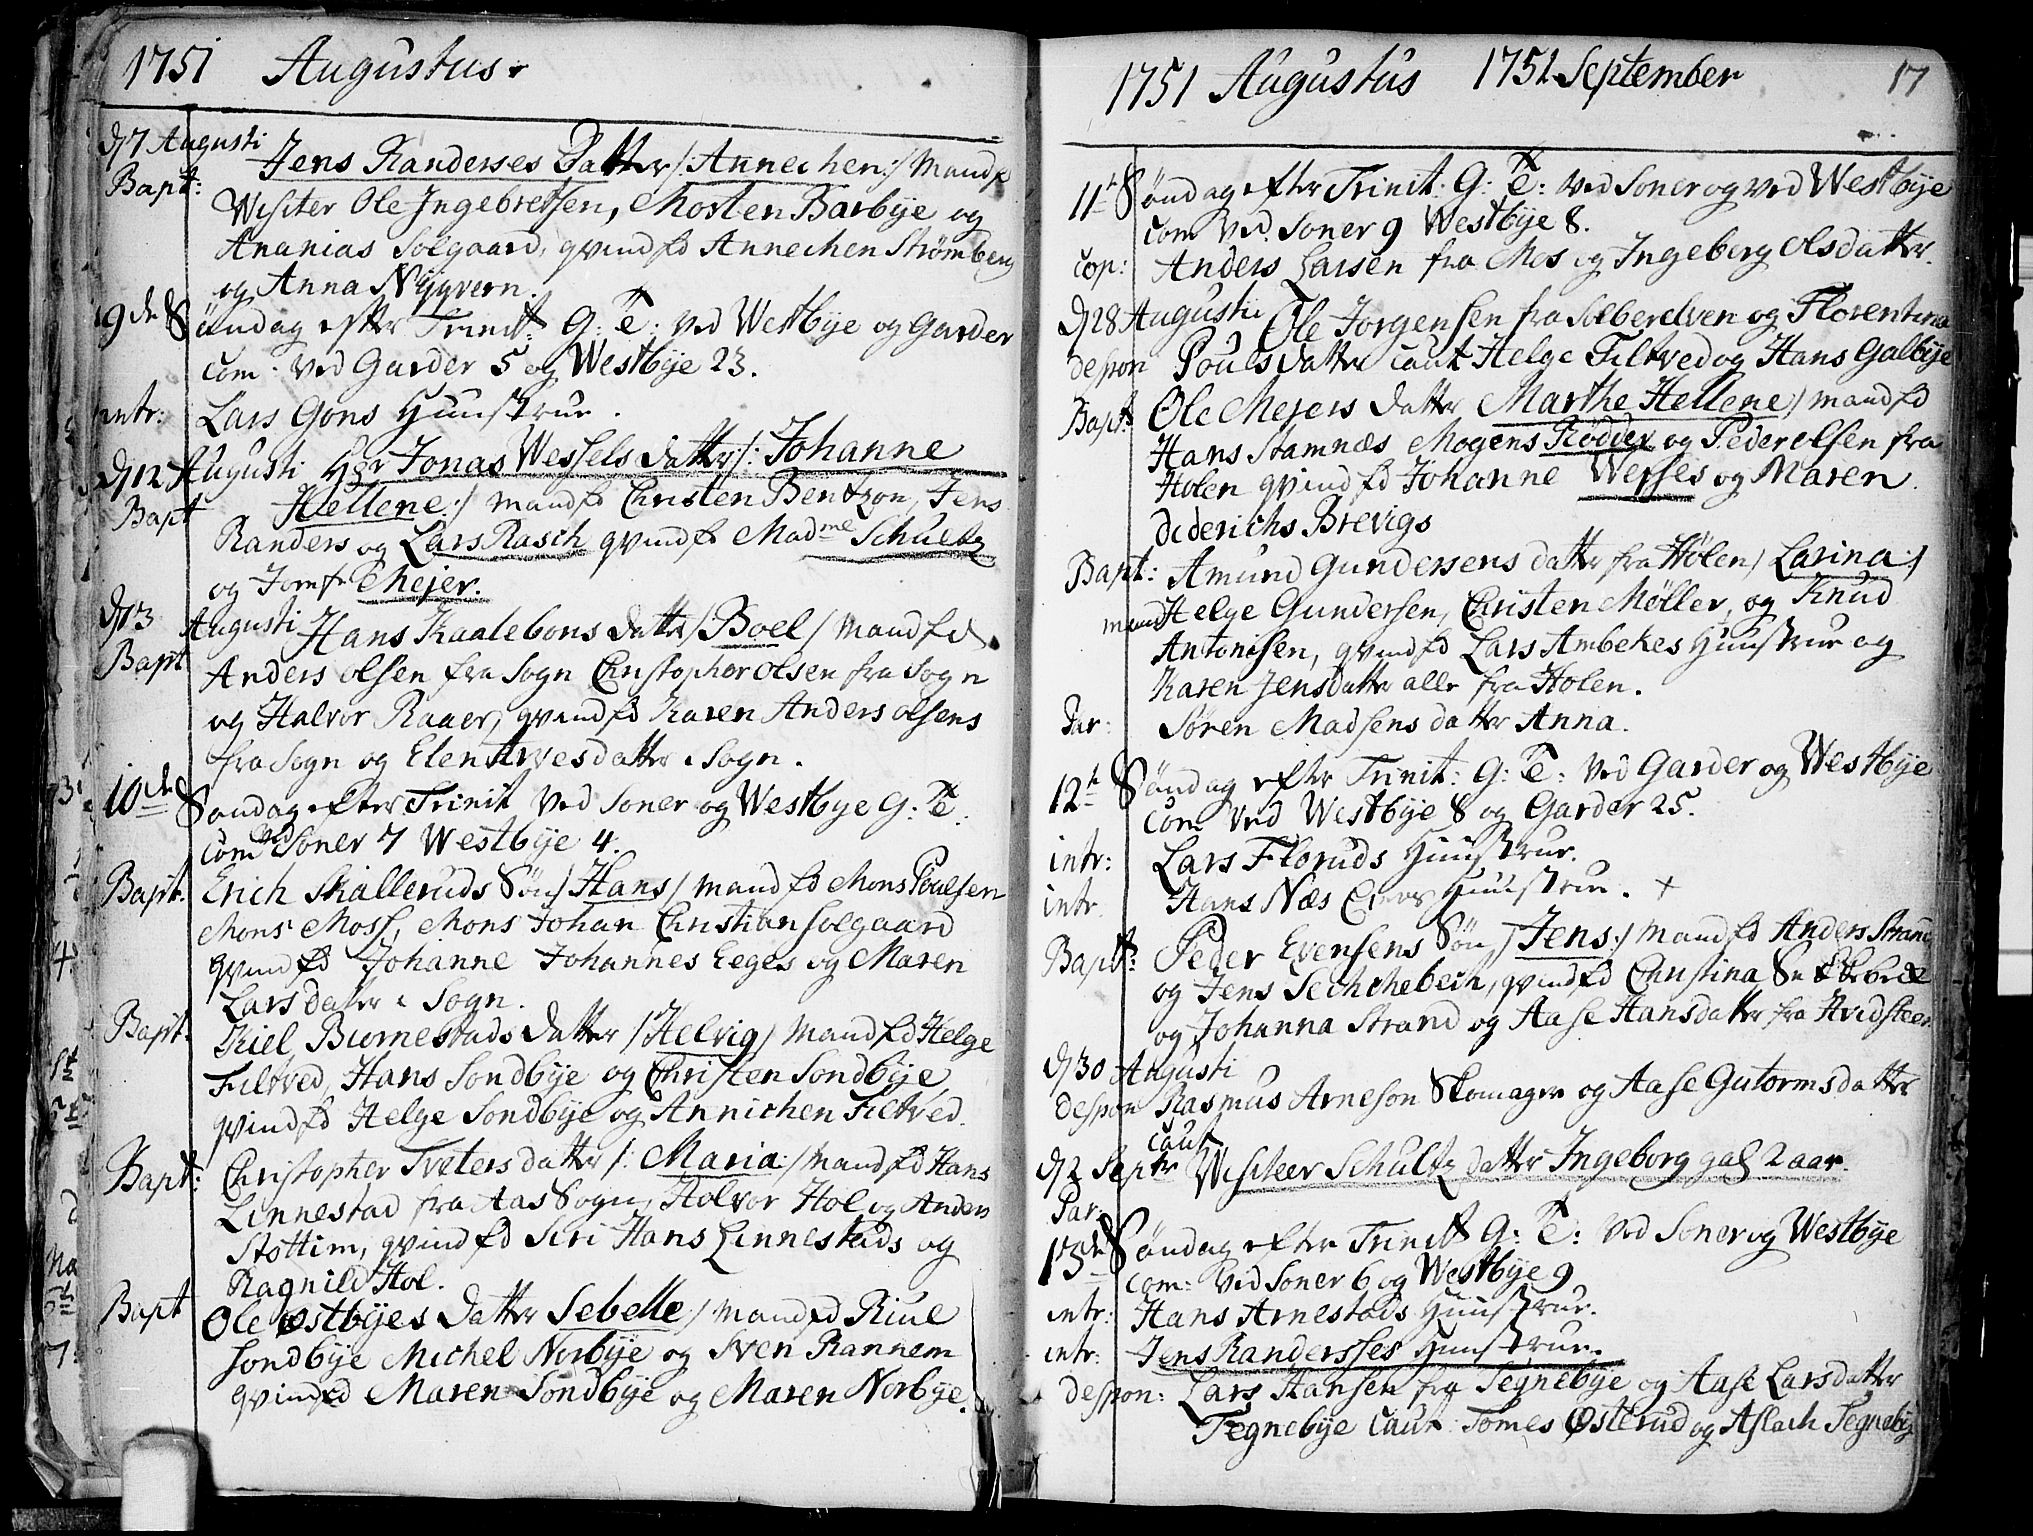 1751 Augustus.
d 7 Augusti
Bapt: Jens Randerses Datter /: Annechen :/ Mandfd
Visiter Ole Ingebretsen, Mosten Barbÿe og
Ananias Solgaard, qvindfd Annechen Strømberg
og Anna Nÿgvern
9de Søndag efter Trinit: G: T: ved Westbÿe og Garder
com. ved Garder 5 og Westbÿe 23.
intr: Lars Gons Huustrue.
d 12 Augusti Hr Jonas Wessels datter /: Johanne
Bapt Hellene :/ mandfd Christen Bentzon, Jens
Randers og Lars Rasch qvindfd Madme Schultz
og Jomfr Mejer.
d 13 Augusti Hans Kaalebons datter / Boel / Mandfd
Bapt Anders olsen fra Sogn Christopher olsen fra Sogn
og Halvor Raaer, qvindfd Karen Anders olsens
fra Sogn og Elen Arvesdatter i Sogn.
10de Søndag efter Trinit ved Soner og Westbye G: T:
com ved Soner 7 Westbÿe 4.
Bapt. Erich Skalleruds Søn / Hans / mandfd Mons Poulsen
Mons Moss, Mons Johan Christian Solgaard
qvindfd Johanne Johannes Eeges og Maren
Larsdatter i Sogn.
Bapt. Kiel Biornestads Datter / Helvig / mandfd Helge
Filtved, Hans Sondbÿe og Christen Sondbÿe
qvindfd Helge Sondbÿe og Annichen Filtved.
Bapt: Christopher Tveters datter /: Maria :/ mandfd Hans
Linnestad fra Aas Sogn, Holvor Hol og Anders
Stottim, qvindfd Siri Hans Linnestads og
Ragnild Hol.
Bapt Ole Østbÿes Datter Sebelle :/ mandfd Riul
Sondbÿe Michel Norbÿe og Sven Rannem
qvindfd Maren Sondbÿe og Maren Norbÿe.
1751 Augustus 1751 September 17
11te Søndag efter Trinit: G: T: ved Soner og ved Westbÿe
com ved Soner 9 Westbÿe 8.
cop: Anders Larsen fra Mos og Ingeberg Olsdatter.
d 28 Augustii Ole Jorgensen fra Solberelven og Florentina
despon Poulsdatter caut Helge Filtved og Hans Galbÿe
Bapt: Ole Mejers Datter Marthe Hellene / mandfd
Hans Stamnæs Mogens Rødder og Peder olsen fra
Holen qvindfd Johanne Wesses og Maren
Diderichs Brevigs
Bapt: Amund Gundersens datter fra Hølen / Larina :/
mand Helge Gundersen, Christen Møller, og Knud
Antonisen, qvindfd Lars Ambekes Huustrue og
Karen Jensdatter alle fra Holen.
Par: Søren Madsens datter Anna.
12te Søndag efter Trinit: G: T: ved Garder og Westbÿe
com ved Westbÿe 8 og Garder 25.
intr: Lars Floruds Huustrue.
intr. Hans Næs Huustrue. +
Bapt: Peder Evensens Søn / Jens :/ mandfd Anders Strand
og Jens Sechchebech, qvindfd Christina
og Johanna Strand og Aase Hansdatter fra Hvidsteen
d 30 Augusti
despon Rasmus Arneson Skomager og Aase Gutormsdatter
caut
d 2 Septr Visiteer Schultz datter Ingeborg gaml 2 aar.
Par.
13de Søndag efter Trinit G: T: ved Soner og Westbÿe
com: ved Soner 6 og Westbÿe 9
intr: Hans Arnestads Huustrue.
intr: Jens Randersses Huustrue.
despon: Lars Hansen fra Tegnebÿe og Aase Larsdatter
Tegnebÿe caut: Tomes Østerud og Aslach Tegnebÿ